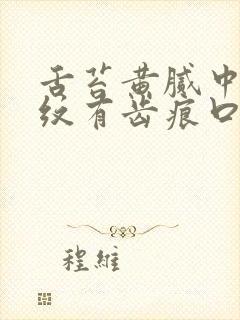 舌苔黄腻中
纹有齿痕口
程維